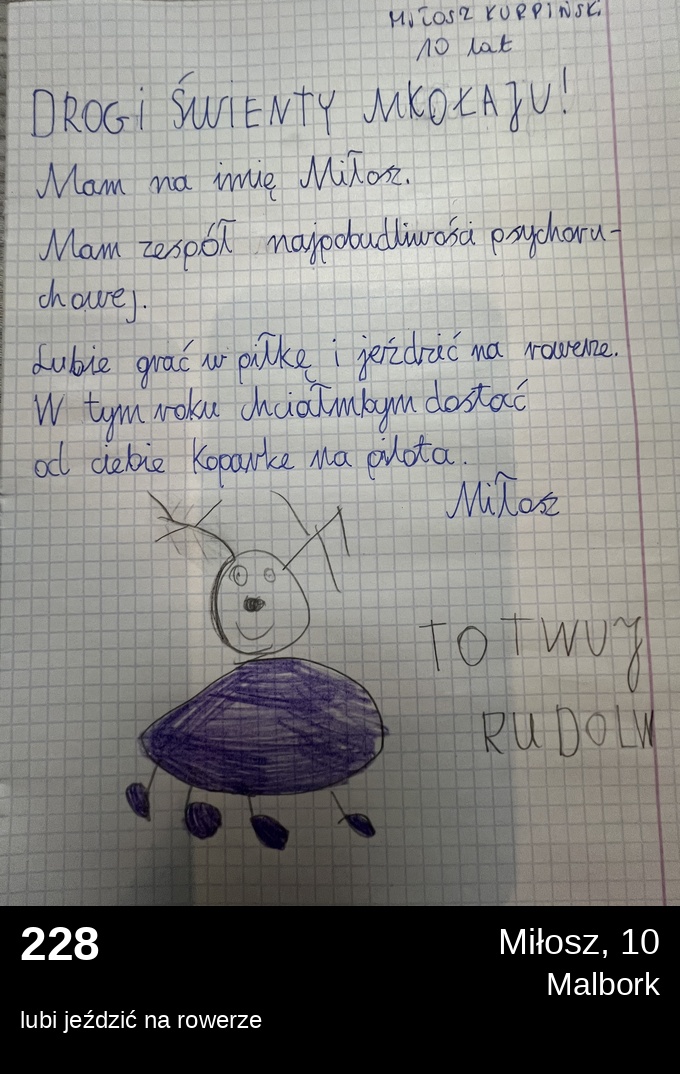 MIŁOSZ KURPIŃSKI
10 lat
DROGI ŚWIENTY MKOŁAJU!
Mam na imię Miłosz.
Mam zespół najpobudliwości psychoru-
chowej.
Lubie grać w piłkę i jeździć na rowerze.
W tym roku chciałmbym dostać
od ciebie Koparke na pilota.
Miłosz
TO TWUJ
RUDOLW
228
Miłosz, 10
Malbork
lubi jeździć na rowerze